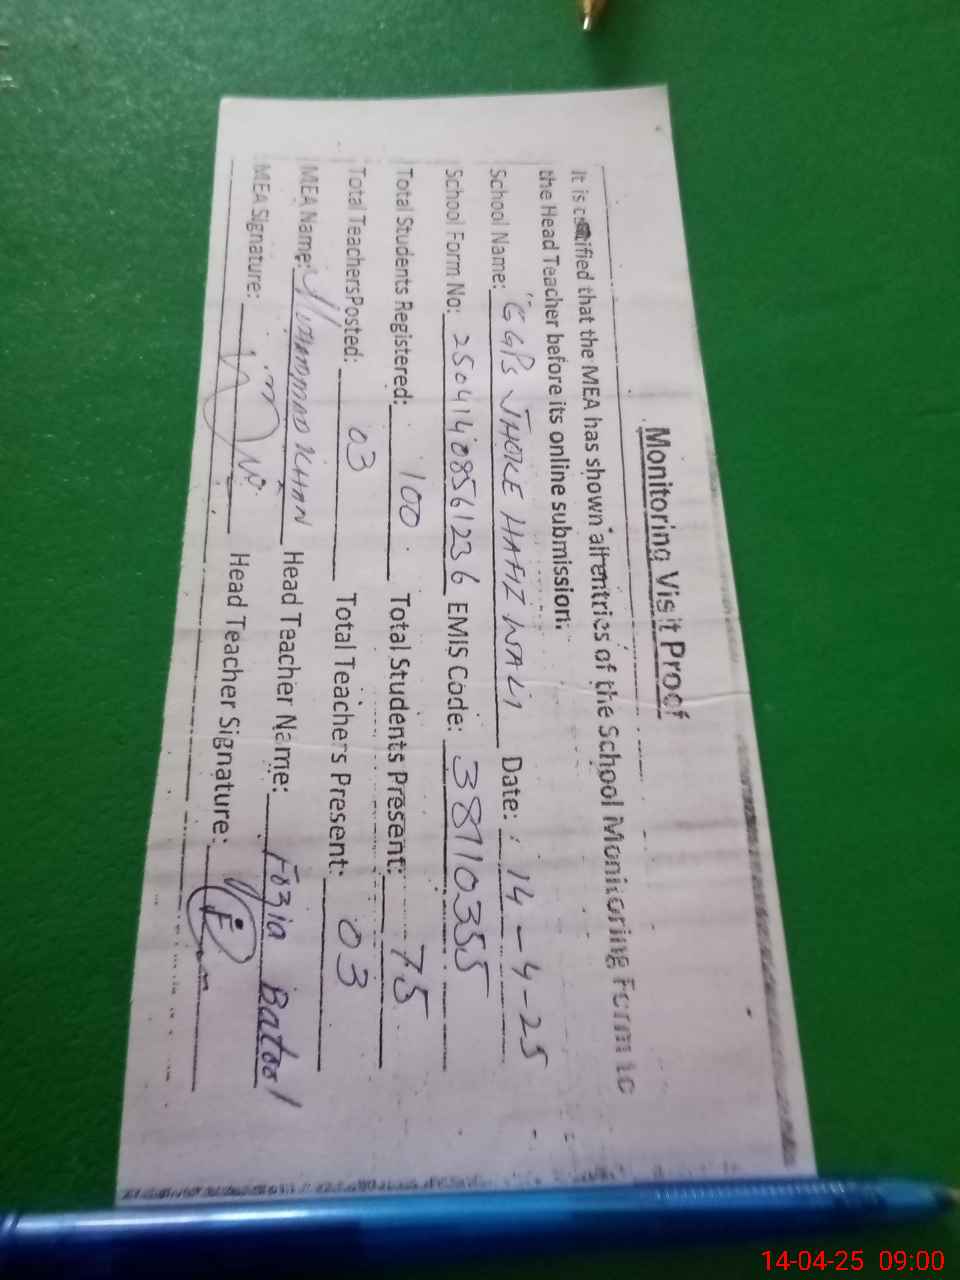 Monitoring Visit Proof
It is certified that the MEA has shown all entries of the School Monitoring Form to
the Head Teacher before its online submission.
School Name: GGPS JHOKE HAFIZ WALI Date: 14-4-25
School Form No: 25041408561236 EMIS Code: 38710355
Total Students Registered: 100 Total Students Present: 75
Total Teachers Posted: 03 Total Teachers Present: 03
MEA Name: Muhammad Khan Head Teacher Name: Fozia Batool
MEA Signature: Head Teacher Signature:
14-04-25 09:00